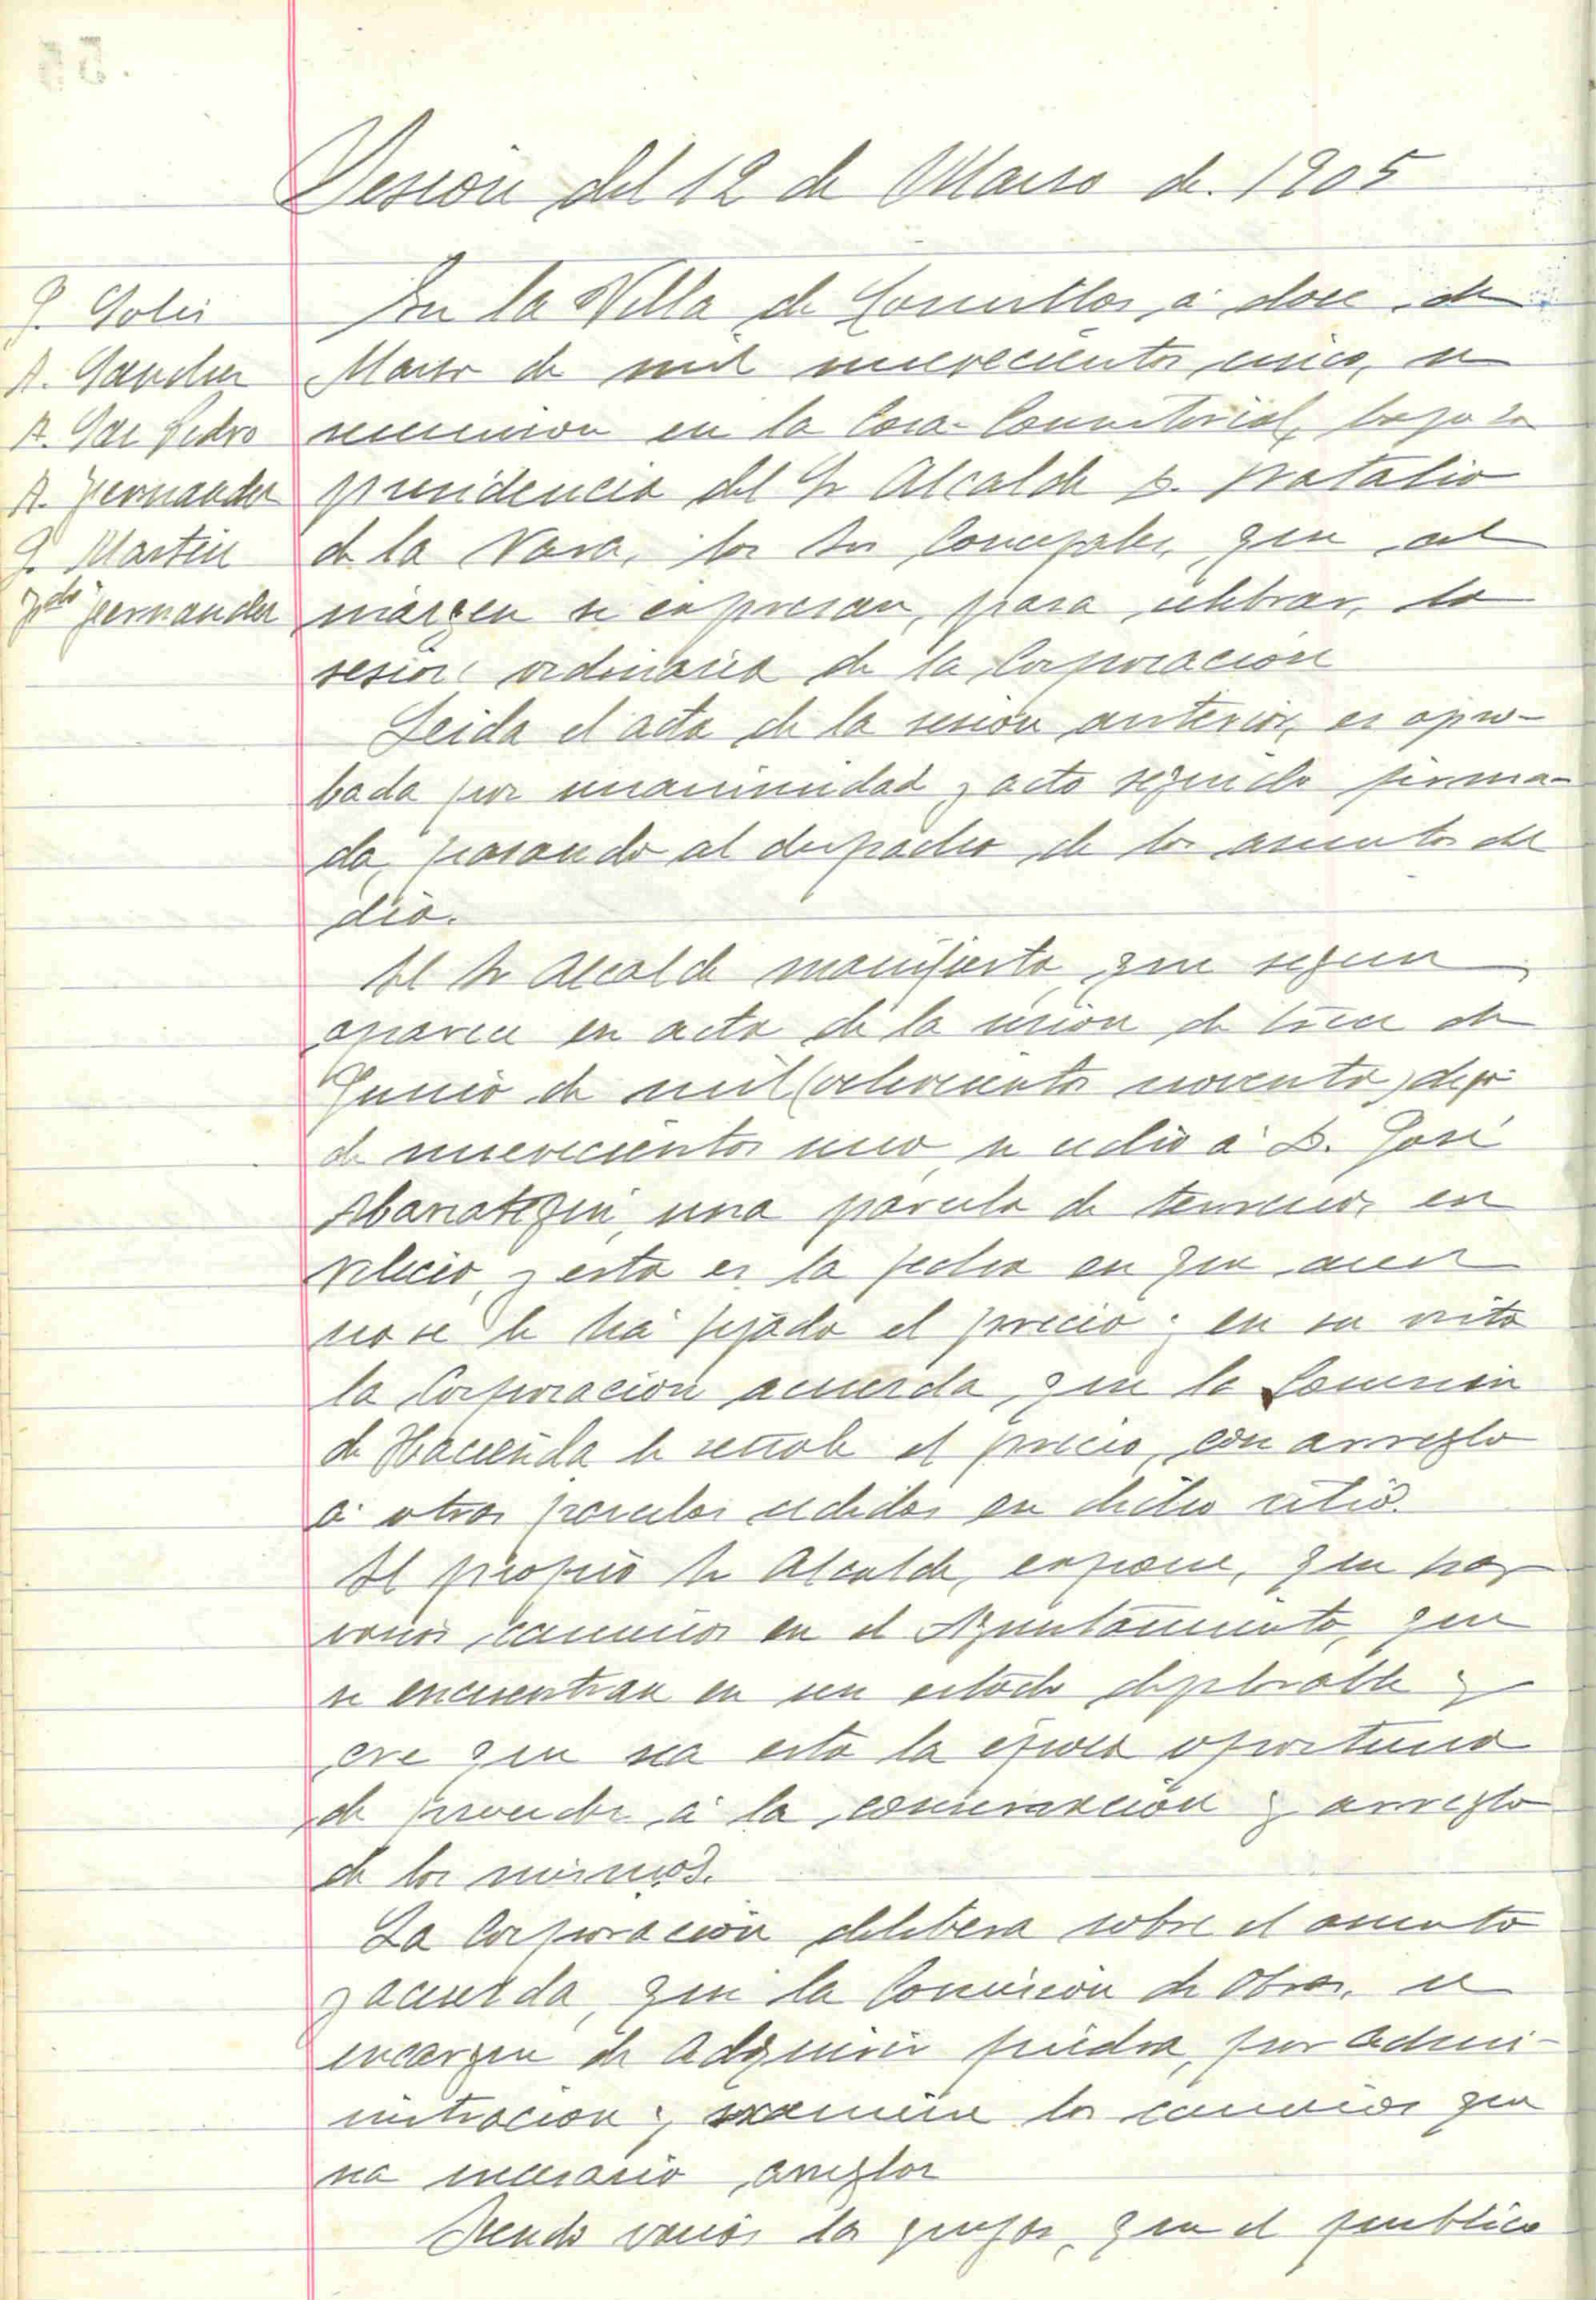 Sesion del 12 de Marzo de 1905
G. Solis
A. Sanchez
A. San Pedro
A. Fernandez
G. Martin
Fdo Fernandez
En la Villa de Comillas, á doce de
Marzo de mil novecientos cinco, se
reunieron en la Casa-Consistorial, bajo la
presidencia del Sr Alcalde D. Natalio
de la Vara, los Sres Concejales, que al
márgen se expresan, para celebrar, la
sesion ordinaria de la Corporacion
Leida el acta de la sesion anterior, es apro-
bada por unanimidad y acto seguido firma-
da, pasando al despacho de los asuntos del
dia.
El Sr Alcalde manifiesta, que segun
aparece en acta de la sesion de trece de
Junio de mil (ochocientos noventa, digo
de nuevecientos uno, se cedio á D. José
una parcela de terreno, en
Velecio, y esta es la fecha en que aun
no se le há fijado el precio; en su vista
la Corporacion acuerda, que la Comision
de Hacienda le señale el precio, con arreglo
á otras parcelas cedidas en dicho sitio.
El propio Sr Alcalde, expone, que hay
varios caminos en el Ayuntamiento, que
se encuentran en un estado deplorable y
cre que sea esta la época oportuna
de proceder á la conservacion y arreglo
de los mismos.
La Corporacion delibera sobre el asunto
y acuerda, que la Comision de Obras, se
encargue de adquirir piedra, por admi-
nistracion, y examine los caminos que
sea necesario arreglar
Siendo varias las quejas, que el publico